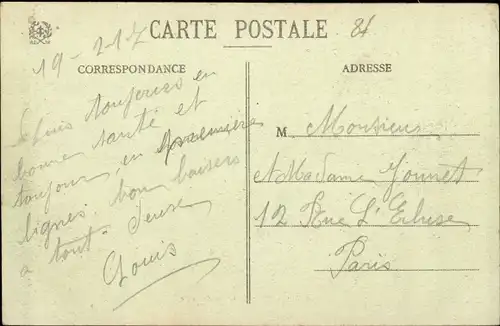 CARTE POSTALE
CORRESPONDANCE
ADRESSE
19-2-17
Suis toujours en
bonne santé et
toujour en première
lignes. bon baisers
a tout.
Louis
M. Monsieur
et Madame Jounet
12 Rue L'Ecluse
Paris